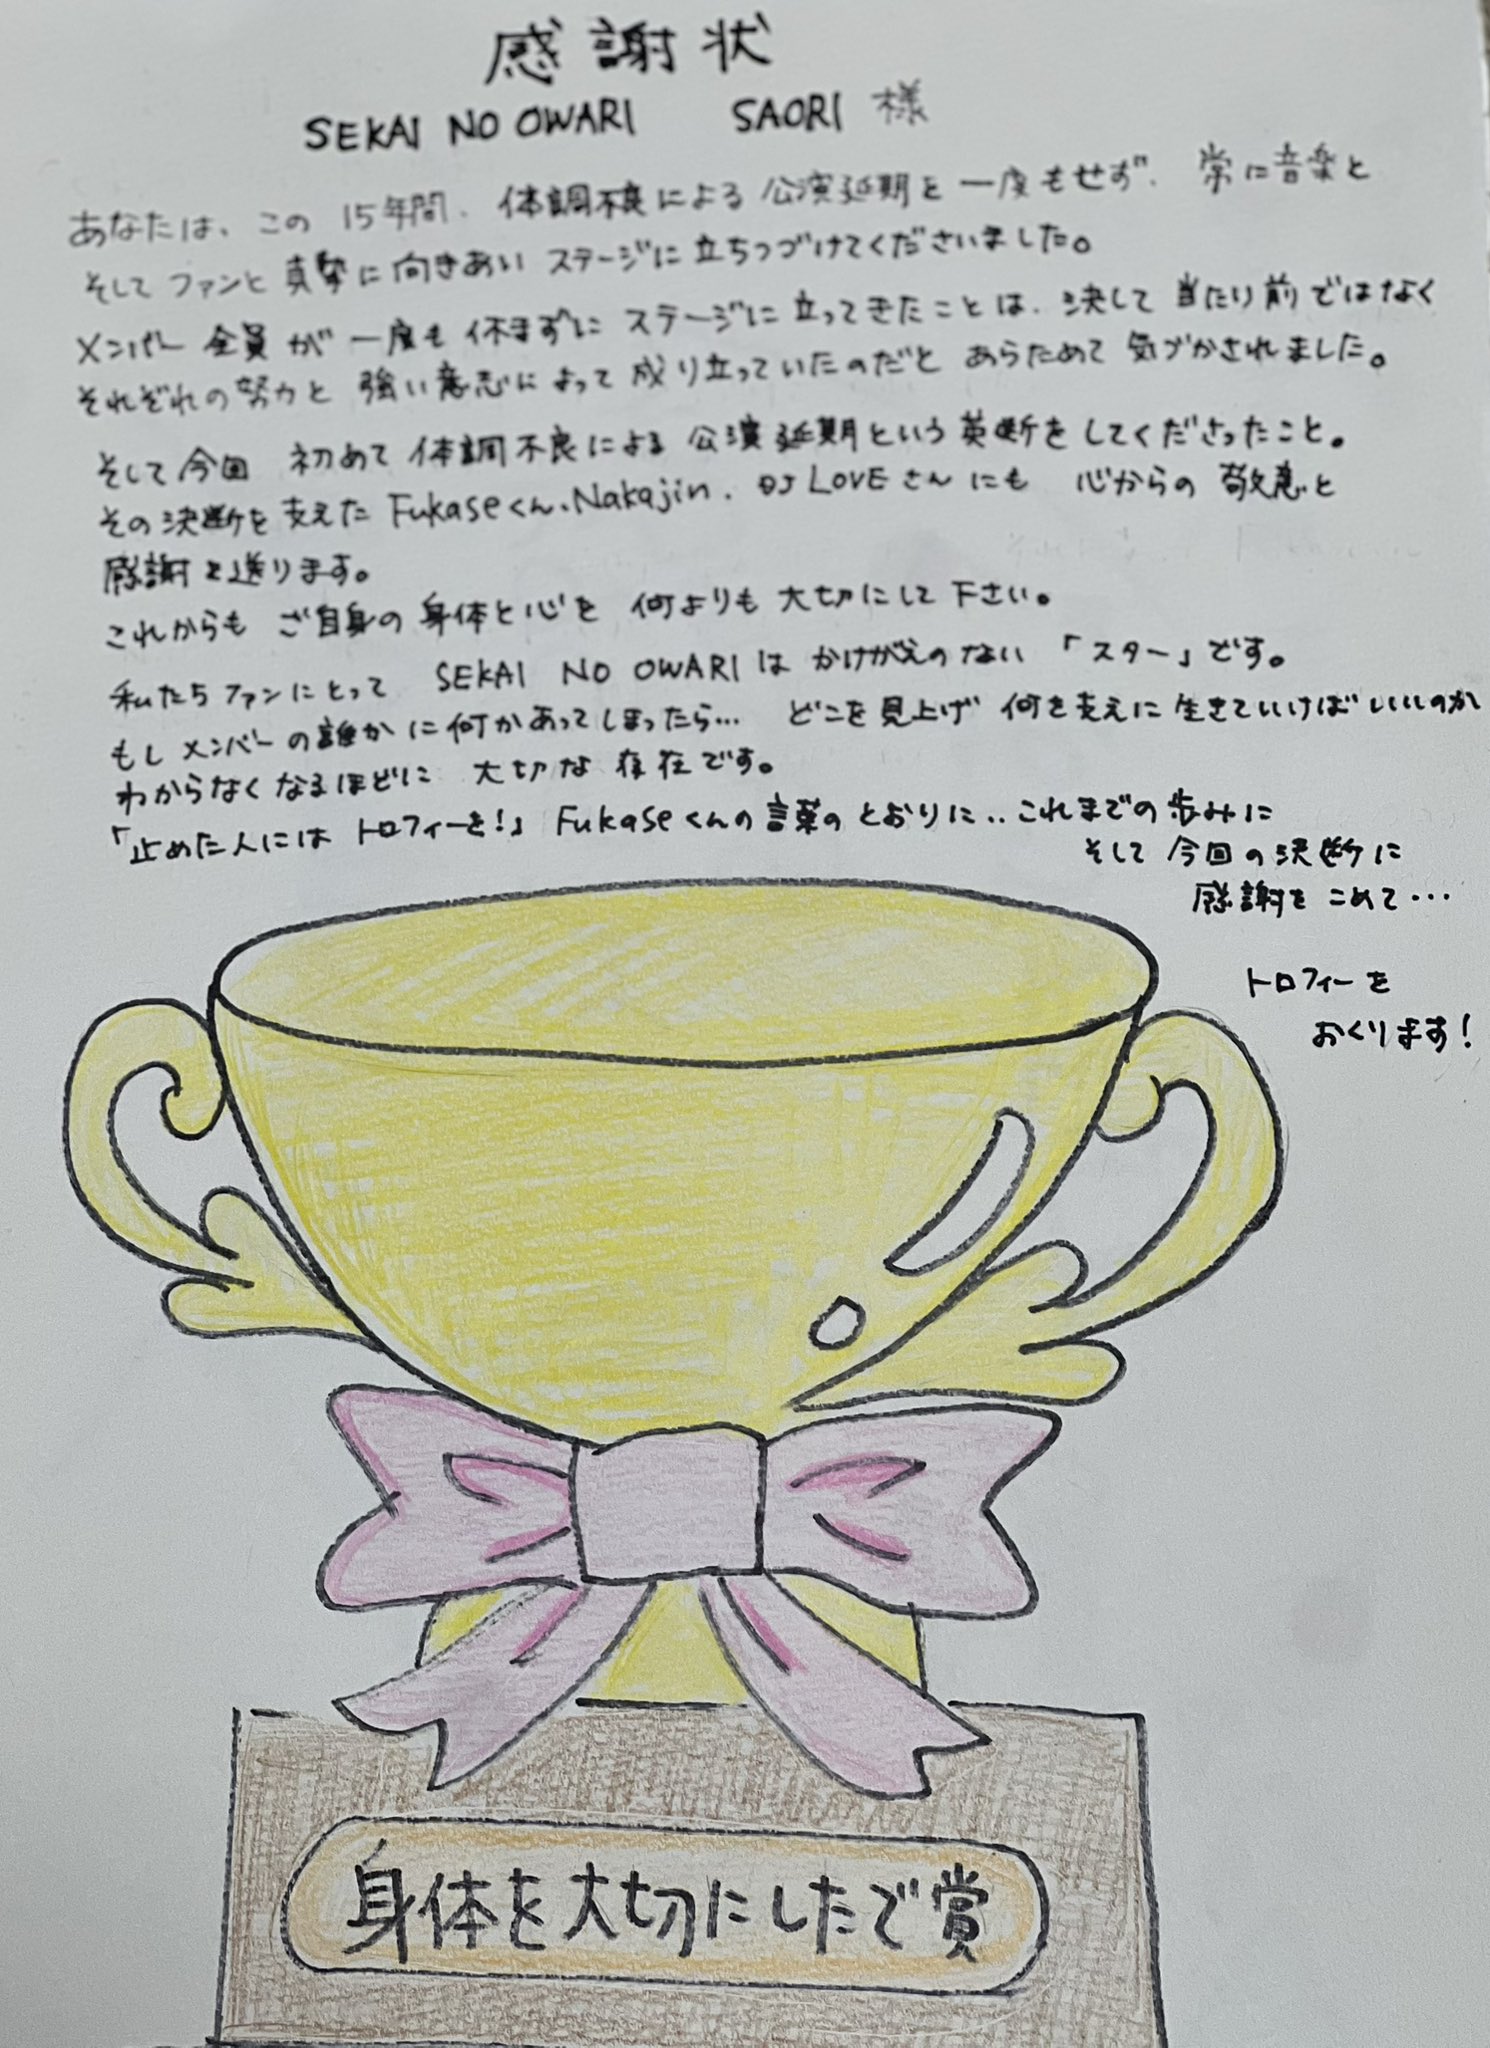 感謝状
SEKAI NO OWARI SAORI 様
あなたは、この 15年間、体調不良による公演延期を一度もせず、常に音楽と
そしてファンと真摯に向きあい ステージに立ちつづけてくださいました。
メンバー全員が一度も休まずに ステージに立ってきたことは、決して当たり前ではなく
それぞれの努力と 強い意志によって成り立っていたのだと あらためて気づかされました。
そして今回 初めて体調不良による 公演延期という英断をしてくださったこと。
その決断を支えた Fukaseくん、Nakajin、DJ LOVEさんにも 心からの敬意と
感謝を送ります。
これからも ご自身の身体と心を 何よりも大切にして下さい。
私たちファンにとって SEKAI NO OWARIは かけがえのない「スター」です。
もしメンバーの誰かに何かあってしまったら… どこを見上げ 何を支えに生きていけばいいのか
わからなくなるほどに 大切な存在です。
「止めた人には トロフィーを!」Fukaseくんの言葉のとおりに‥これまでの歩みに
そして 今回の決断に
感謝を こめて…
トロフィーを
おくります!
身体を大切にしたで賞